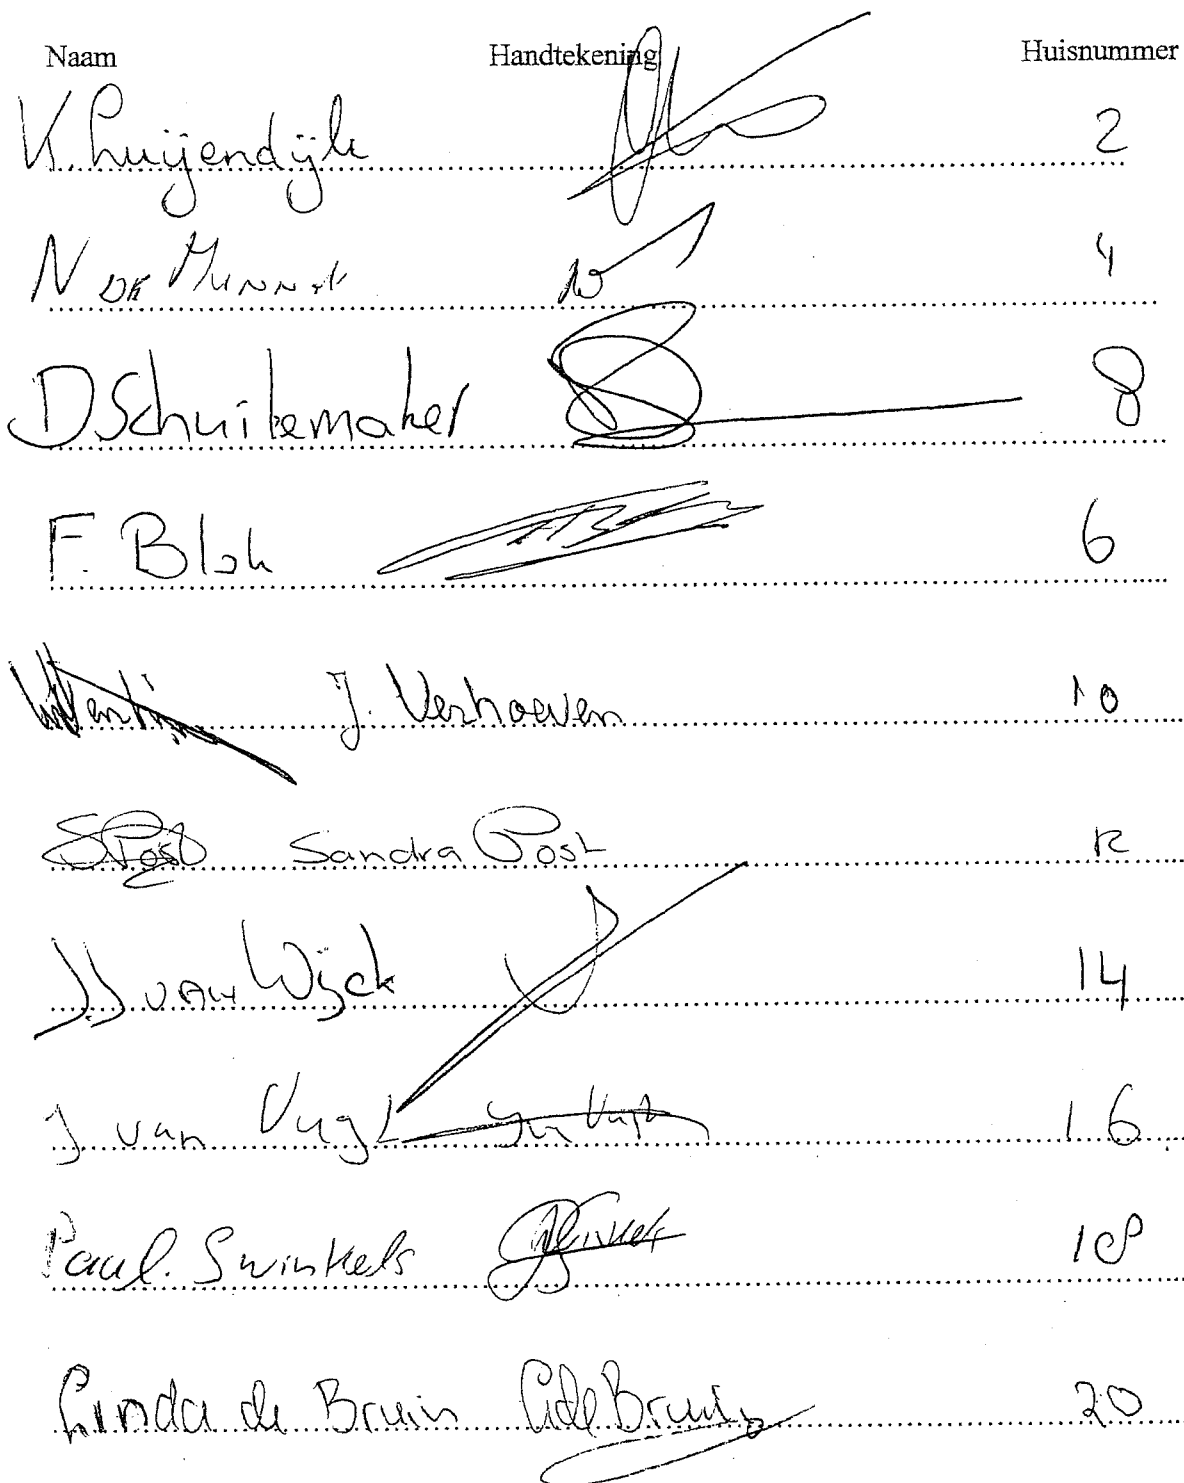 Naam Handtekening Huisnummer
K. Luijendijk 2
N de Munnik 4
D Schuitemaker 8
F. Blok 6
J. Verhoeven 10
SPost Sandra Post 12
J.J van Wijck 14
J van Vugt JvVugt 16
Paul. Swinkels 18
Linda de Bruin LdeBruin 20